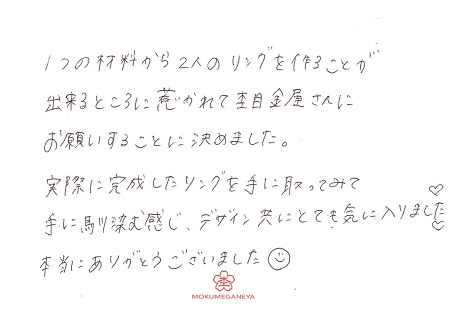 1つの材料から2人のリングを作ることが
出来るところに惹かれて杢目金屋さんに
お願いすることに決めました。
実際に完成したリングを手に取ってみて
手に馴染む感じ、デザイン共にとても気に入りました
本当にありがとうございました
杢
MOKUMEGANEYA